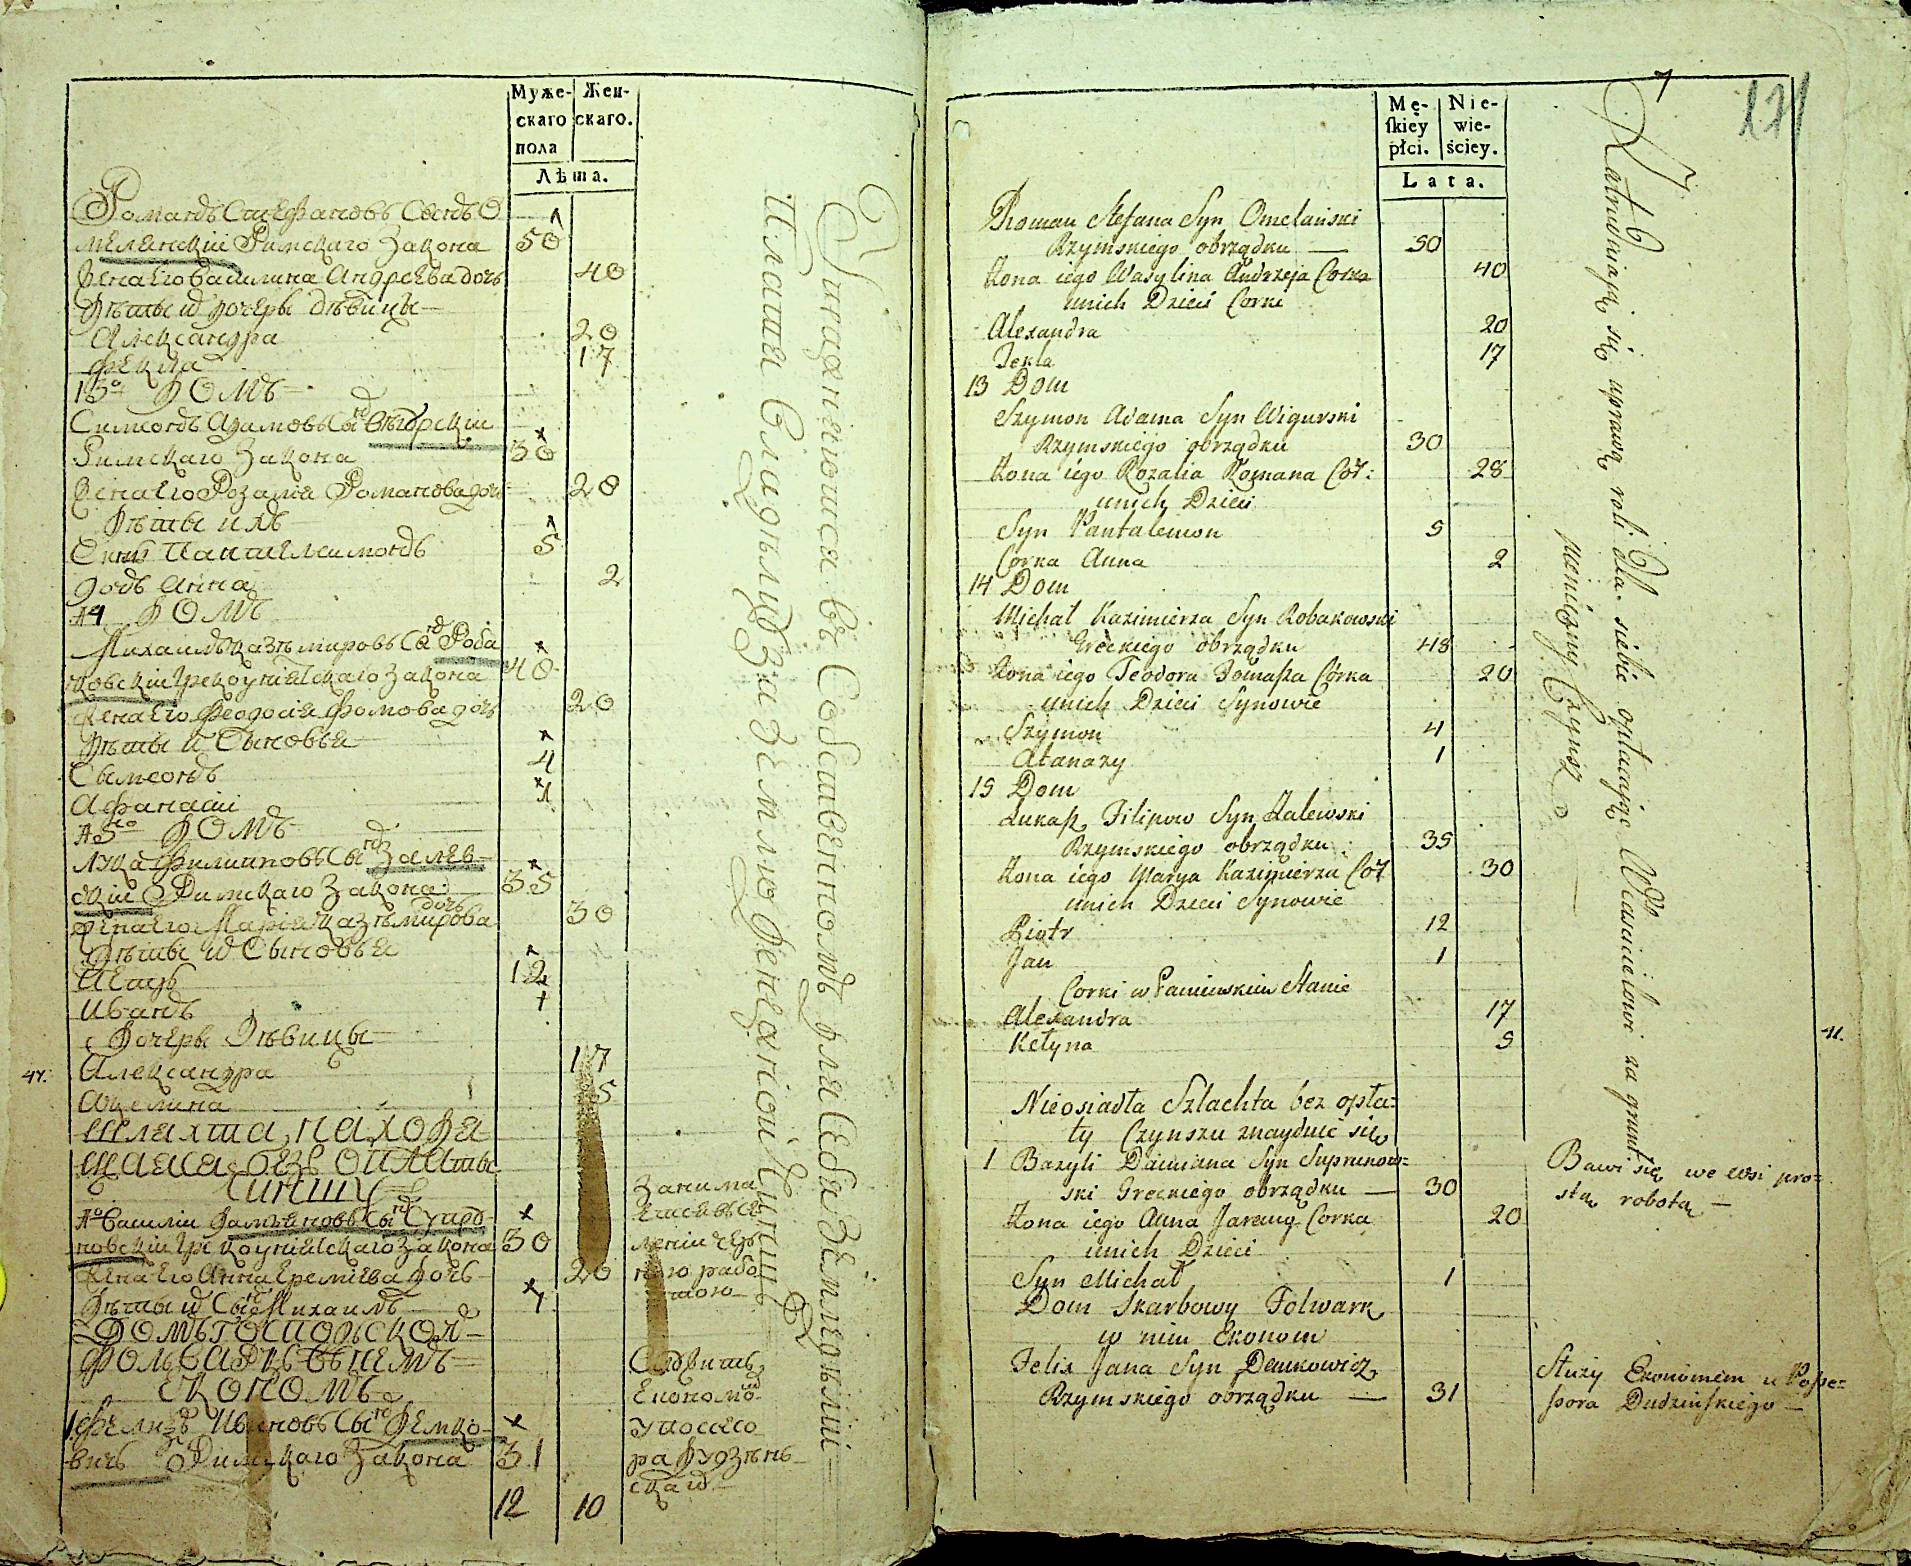 Муже-
скаго
пола
Жен-
скаго.
Лѣта.
Романъ Стефановъ Сынъ О
меленскій Римскаго Закона 50
Жена Его Василина Андреева дочь 40
Дѣти ихъ дочеры дѣвицы
Александра 20
Фекла 17
13о ДОМЪ
Симеонъ Адамовъ Сынъ Вѣгурскій
Римскаго Закона 30
Жена Его Розалія Романова дочь 28
Дѣти ихъ
Синъ Пантелеимонъ 5
дочь Анна 2
14 ДОМЪ
Михаилъ Казѣмировъ Сынъ Роба
ковскій Грекоуніятскаго Закона 48
Жена Его Феодосія Фомова дочь 20
Дѣти ихъ Сыновья
Сымеонъ 4
Афанасій 1
15но ДОМЪ
Лука Филиповъ Сынъ Залев-
скій Римскаго Закона 35
Жена Его Марія Казѣмирова дочь 30
Дѣти ихъ Сыновья
Петръ 12
Иванъ 1
Дочеры Дѣвицы
47.
Александра 17
Акелина 5
Шляхта, находя
щаяся безъ оплаты
Чиншу
1о Василій Даміяновъ Сынъ Супро-
новскій Грекоуніятскаго Закона 30
Жена Его Анна Еремѣева дочь 20
Дѣти ихъ Сынъ Михаилъ 1
Домъ Господьской
Фольваркъ въ немъ
Экономъ
1. Феликсъ Ивановъ Сынъ Демко-
вичъ Римскаго Закона 31
12 10
Упражняюшся въ Собственномъ для Себя Земледѣліи
Платя Владѣлцу За Землю Денежной Чиншъ
Занима
ною рабо
тою
Служитъ
Економо
У Поссесо
ра Дудзѣнь
скаго
7
121
Mę-
ſkiey
płci.
Nie-
wie-
ściey.
Lata.
Roman Stefana Syn Omelański
Rzymskiego obrządku — 50
Żona iego Wasylina Andrzeja Corka 40
unich Dzieci Corki
Alexandra 20
Tekla 17
13 Dom
Szymon Adama Syn Wigurski
Rzymskiego obrządku 30
Żona iego Rozalia Romana Cór: 28
unich Dzieci
Syn Pantalemon 5
Corka Anna 2
14 Dom
Michał Kazimierza Syn Robakowski
Greckiego obrządku 48
Żona iego Teodora Tomaſza Córka 20
unich Dzieci Synowie
Szymon 4
Atanazy 1
15 Dom
Łukaſz Filipow Syn Zalewski
Rzymskiego obrządku 35
Żona iego Marya Kazimierza Cór 30
unich Dzieci Synowie
Piotr 12
Jan 1
Corki w Panieńskim Stanie
Alexandra 17
Ketyna 5
Nieosiadła Szlachta bez opła-
ty Czynszu znayduie się
1 Bazyli Damiana Syn Suprunow-
ski Greckiego obrządku — 30
Żona iego Anna Jaremy Corka 20
unich Dzieci
Syn Michał 1
Dom Skarbowy Folwark
w nim Ekonom
Felix Jana Syn Demkowicz
Rzymskiego obrządku — 31
Zatrudniają się uprawą roli dla siebie opłacając Właścicielowi za grunt
pieniężny Czynsz
11.
Bawi się we wsi pro-
stą robotą —
Służy Ekonomem u Poſse-
ſsora Dudzinſkiego —